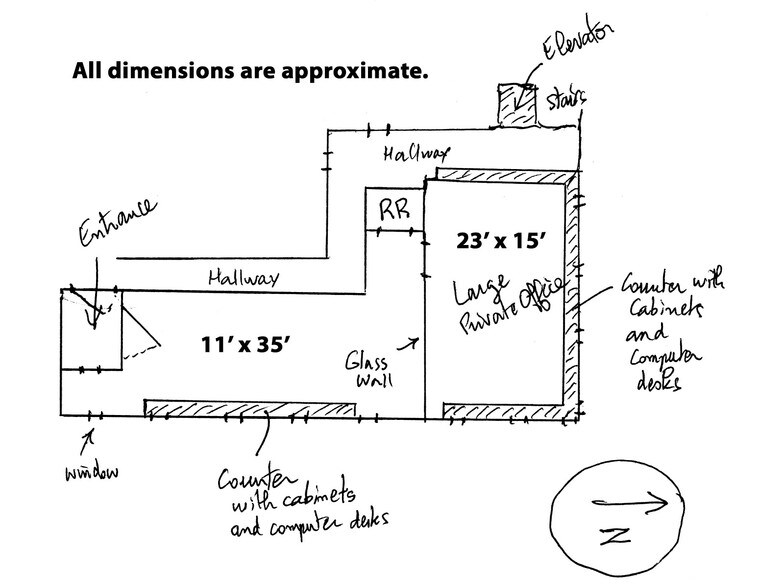 Elevator
All dimensions are approximate.
Stairs
Hallway
Entrance
RR
23' x 15'
Hallway
Large
Private Office
Counter with
Cabinets
and
computer
desks
11' x 35'
Glass
wall
window
Counter
with cabinets
and computer desks
N